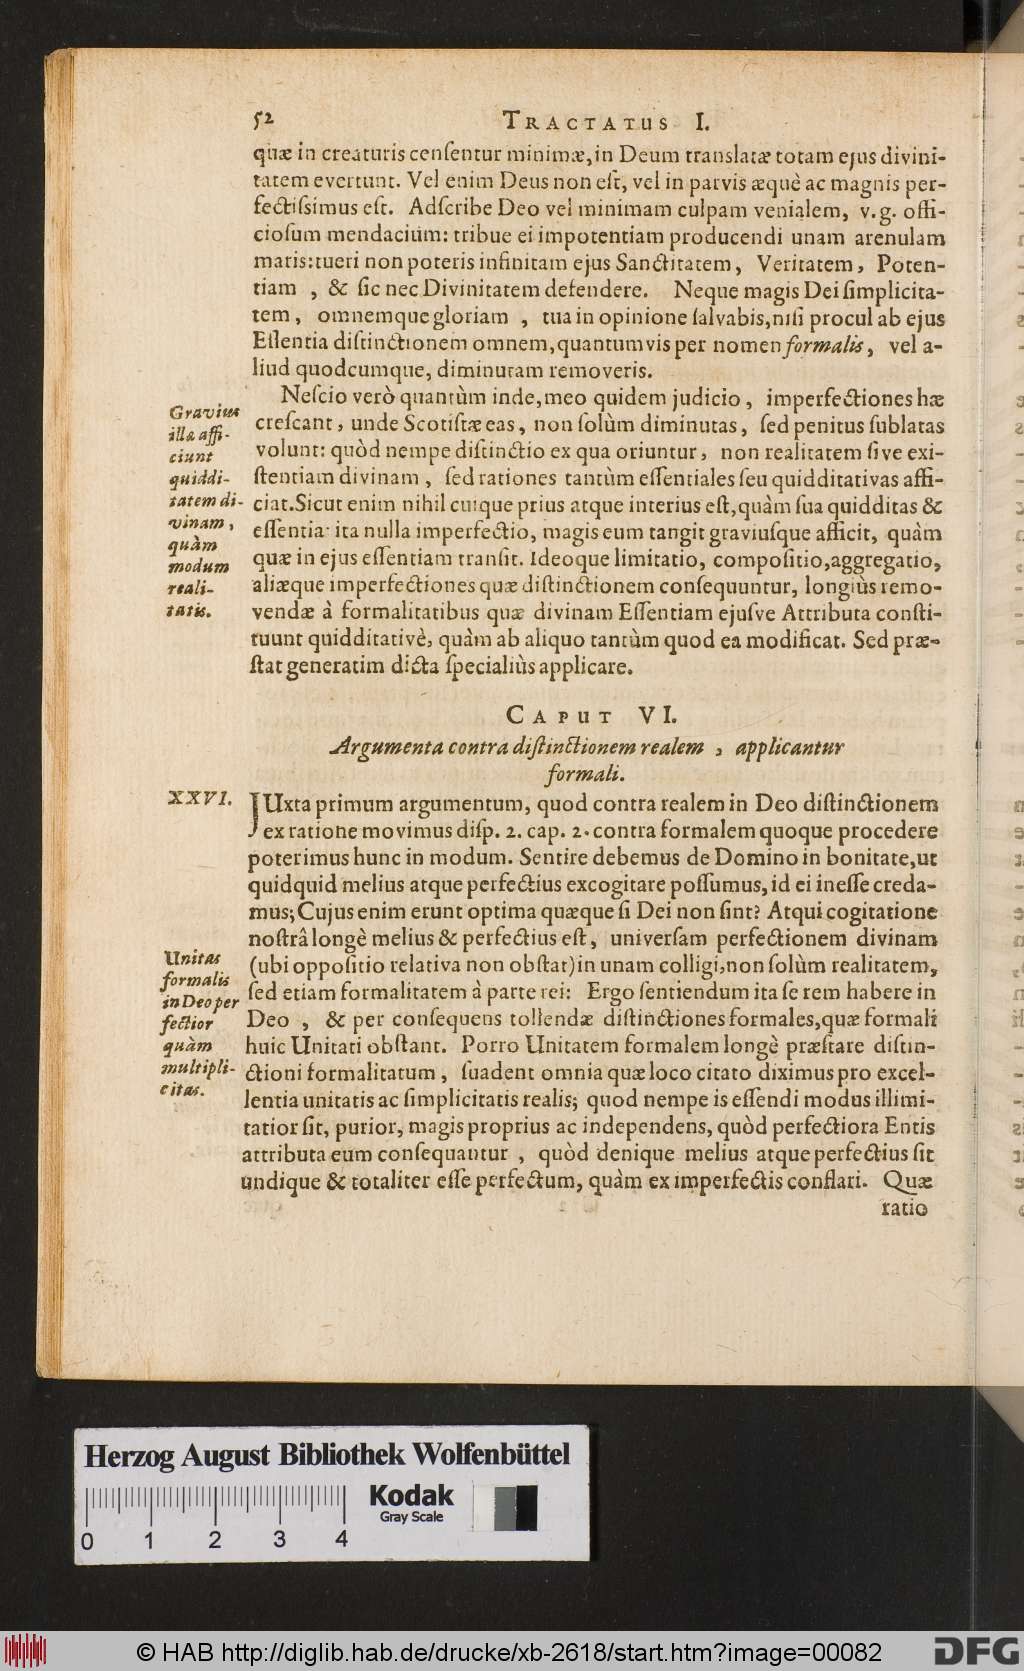 52 TRACTATUS I.
quæ in creaturis censentur minimæ, in Deum translatæ totam ejus divini-
tatem evertunt. Vel enim Deus non est, vel in parvis æquè ac magnis per-
fectissimus est. Adscribe Deo vel minimam culpam venialem, v. g. offi-
ciosum mendacium: tribue ei impotentiam producendi unam arenulam
maris: tueri non poteris infinitam ejus Sanctitatem, Veritatem, Poten-
tiam , & sic nec Divinitatem defendere. Neque magis Dei simplicita-
tem , omnemque gloriam , tua in opinione salvabis, nisi procul ab ejus
Essentia distinctionem omnem, quantumvis per nomen formalis, vel a-
liud quodcumque, diminutam removeris.
Nescio verò quantùm inde, meo quidem judicio, imperfectiones hæ
crescant, unde Scotistæ eas, non solùm diminutas, sed penitus sublatas
volunt: quòd nempe distinctio ex qua oriuntur, non realitatem sive exi-
stentiam divinam, sed rationes tantùm essentiales seu quidditativas affi-
ciat. Sicut enim nihil cuique prius atque interius est, quàm sua quidditas &
essentia: ita nulla imperfectio, magis eum tangit graviusque afficit, quàm
quæ in ejus essentiam transit. Ideoque limitatio, compositio, aggregatio,
aliæque imperfectiones quæ distinctionem consequuntur, longiùs remo-
vendæ à formalitatibus quæ divinam Essentiam ejusve Attributa consti-
tuunt quidditativè, quàm ab aliquo tantùm quod ea modificat. Sed præ-
stat generatim dicta specialiùs applicare.
Gravius
illæ affi-
ciunt
quiddi-
tatem di-
vinam,
quàm
modum
reali-
tatis.
CAPUT VI.
Argumenta contra distinctionem realem , applicantur
formali.
XXVI.
JUxta primum argumentum, quod contra realem in Deo distinctionem
ex ratione movimus disp. 2. cap. 2. contra formalem quoque procedere
poterimus hunc in modum. Sentire debemus de Domino in bonitate, ut
quidquid melius atque perfectius excogitare possumus, id ei inesse creda-
mus; Cujus enim erunt optima quæque si Dei non sint? Atqui cogitatione
nostrâ longè melius & perfectius est, universam perfectionem divinam
(ubi oppositio relativa non obstat) in unam colligi, non solùm realitatem,
sed etiam formalitatem à parte rei: Ergo sentiendum ita se rem habere in
Deo , & per consequens tollendæ distinctiones formales, quæ formali
huic Unitati obstant. Porro Unitatem formalem longè præstare distin-
ctioni formalitatum, suadent omnia quæ loco citato diximus pro excel-
lentia unitatis ac simplicitatis realis; quod nempe is essendi modus illimi-
tatior sit, purior, magis proprius ac independens, quòd perfectiora Entis
attributa eum consequantur , quòd denique melius atque perfectius sit
undique & totaliter esse perfectum, quàm ex imperfectis conflari. Quæ
ratio
Unitas
formalis
in Deo per
fectior
quàm
multipli-
citas.
Herzog August Bibliothek Wolfenbüttel
Kodak
Gray Scale
0 1 2 3 4
© HAB http://diglib.hab.de/drucke/xb-2618/start.htm?image=00082
DFG